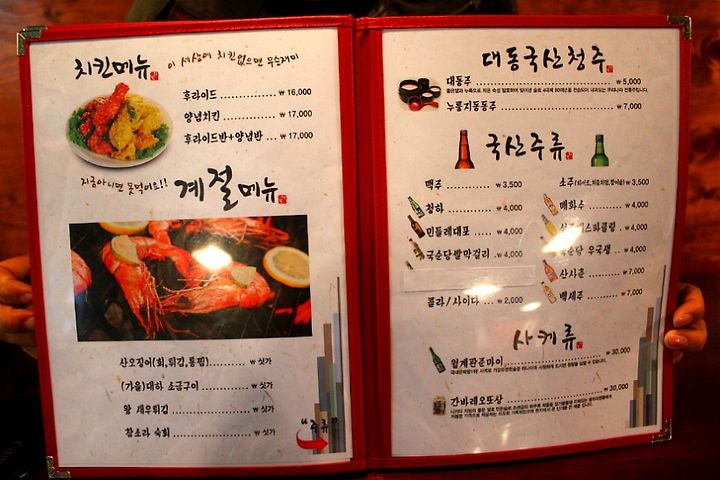 치킨메뉴
이 세상에 치킨없으면 무슨재미
후라이드 ₩ 16,000
양념치킨 ₩ 17,000
후라이드반+양념반 ₩ 17,000
지금아니면 못먹어요!!
계절메뉴
산오징어(회,튀김,통찜) ₩ 싯가
(가을)대하 소금구이 ₩ 싯가
왕 새우튀김 ₩ 싯가
참소라 숙회 ₩ 싯가
"주류"
대동국산청주
대동주 ₩ 5,000
누룽지동동주 ₩ 7,000
국산주류
맥주 ₩ 3,500
청하 ₩ 4,000
민들레대포 ₩ 4,000
국순당쌀막걸리 ₩ 4,000
콜라/사이다 ₩ 2,000
소주 ₩ 3,500
매화수 ₩ 4,000
₩ 4,000
국순당 우국생 ₩ 4,000
산사춘 ₩ 7,000
백세주 ₩ 7,000
사케류
월계관준마이 ₩ 30,000
간바레오또상 ₩ 30,000